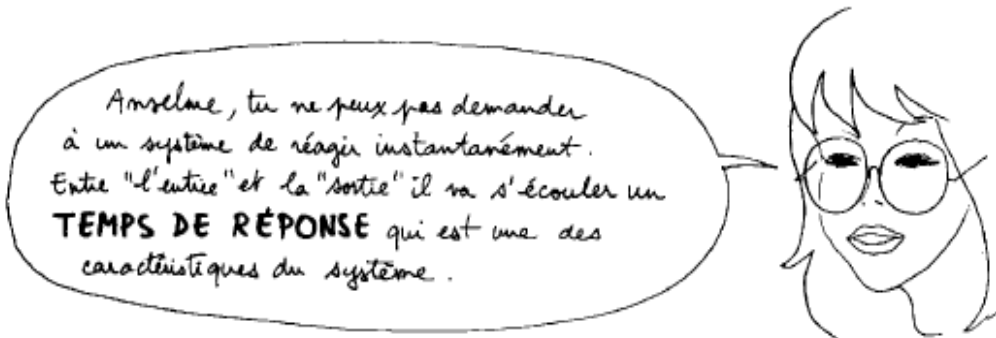 Anselme, tu ne peux pas demander
à un système de réagir instantanément.
Entre "l'entrée" et la "sortie" il va s'écouler un
TEMPS DE RÉPONSE qui est une des
caractéristiques du système.